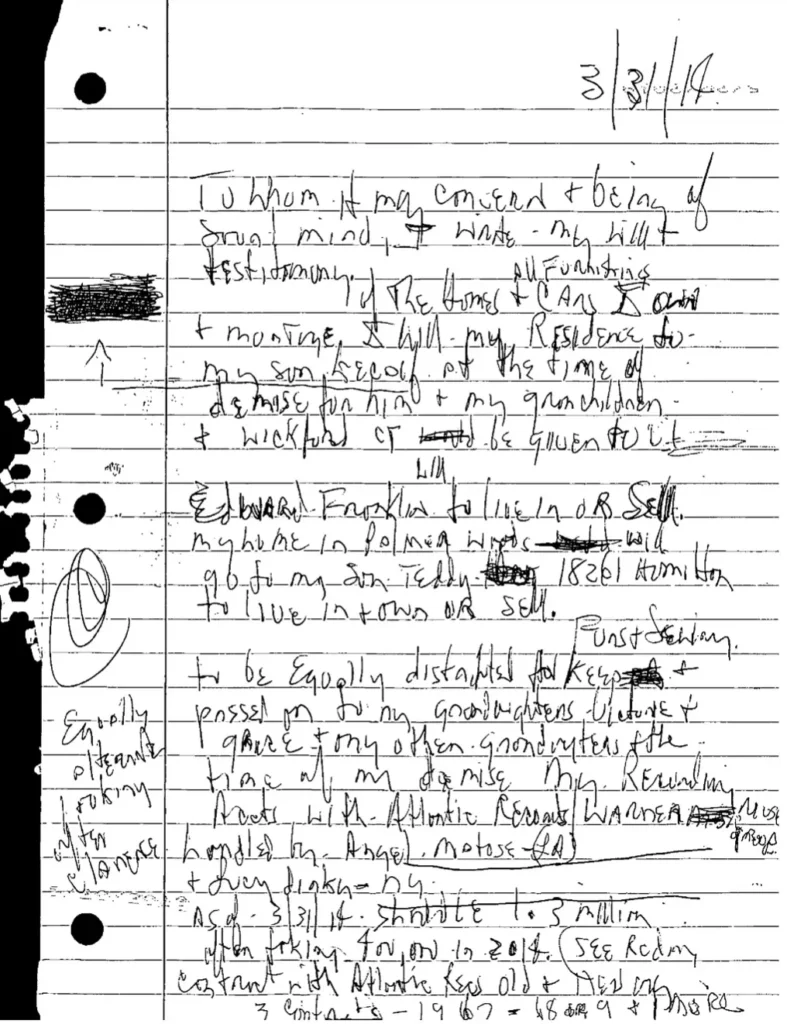 3/31/14
To Whom it may concern + being of
sound mind, I write - my will +
testimony.
All Furnishing
The Homes + CARS I own
I will my Residence to
my son Kecalf at the time of
demise for him + my granchildren
+ Wickford CT be given to Lt
Will
Edward Franklin to live in OR Sell.
my home in Palmer Woods will
go to my son Teddy 18261 Hamilton
to live in + own OR sell.
Furs +
to be Equally distributed for keeps +
passed on to my grandaughters Victorie +
grace + any other grandauters
time of my demise My Recording
Accts with Atlantic Records/WARNER
Muse
group
handled by
+
As of 3/31/14 1.3 million
after taking in 2014. (SEE
contract with Atlantic Recs old + New
3 Contracts - 1967 = 68
Equally
alternate
looking
after
Clarence